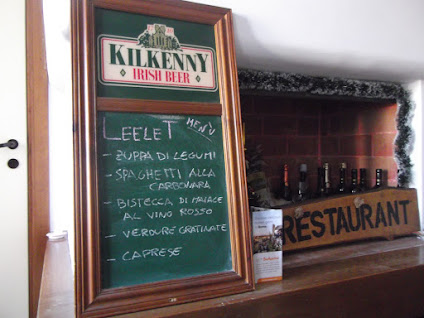 KILKENNY
IRISH BEER
LEELET MENÙ
- ZUPPA DI LEGUMI
- SPAGHETTI ALLA
CARBONARA
- BISTECCA DI MAIALE
AL VINO ROSSO
- VERDURE GRATINATE
- CAPRESE
RESTAURANT